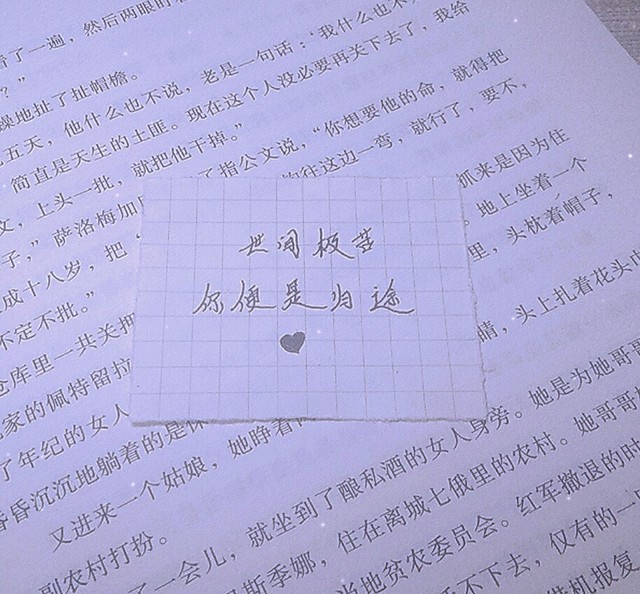 了一遍，然后两眼盯
？”
躁地扯了扯帽檐。
五天，他什么也不说，老是一句话：‘我什么也不
简直是天生的土匪。现在这个人没必要再关下去了，我给
文，上头一批，就把他干掉。”
子，”萨洛梅加 了指公文说，“你想要他的命，就得把
成十八岁，把 往这边一弯，就行了，要不，
不定不批。”
仓库里一共关押 抓来是因为住
家的佩特留拉 地上坐着一个
了年纪的女人 里，头枕着帽子，
昏昏沉沉地躺着的是
又进来一个姑娘，她睁着 睛，头上扎着花头
副农村打扮。
世间极苦
你便是归途
了一会儿，就坐到了酿私酒的女人身旁。她是为她哥哥
斯季娜，住在离城七俄里的农村。她哥哥
当地贫农委员会。红军撤退的时
不下去，仅有的一
借机报复